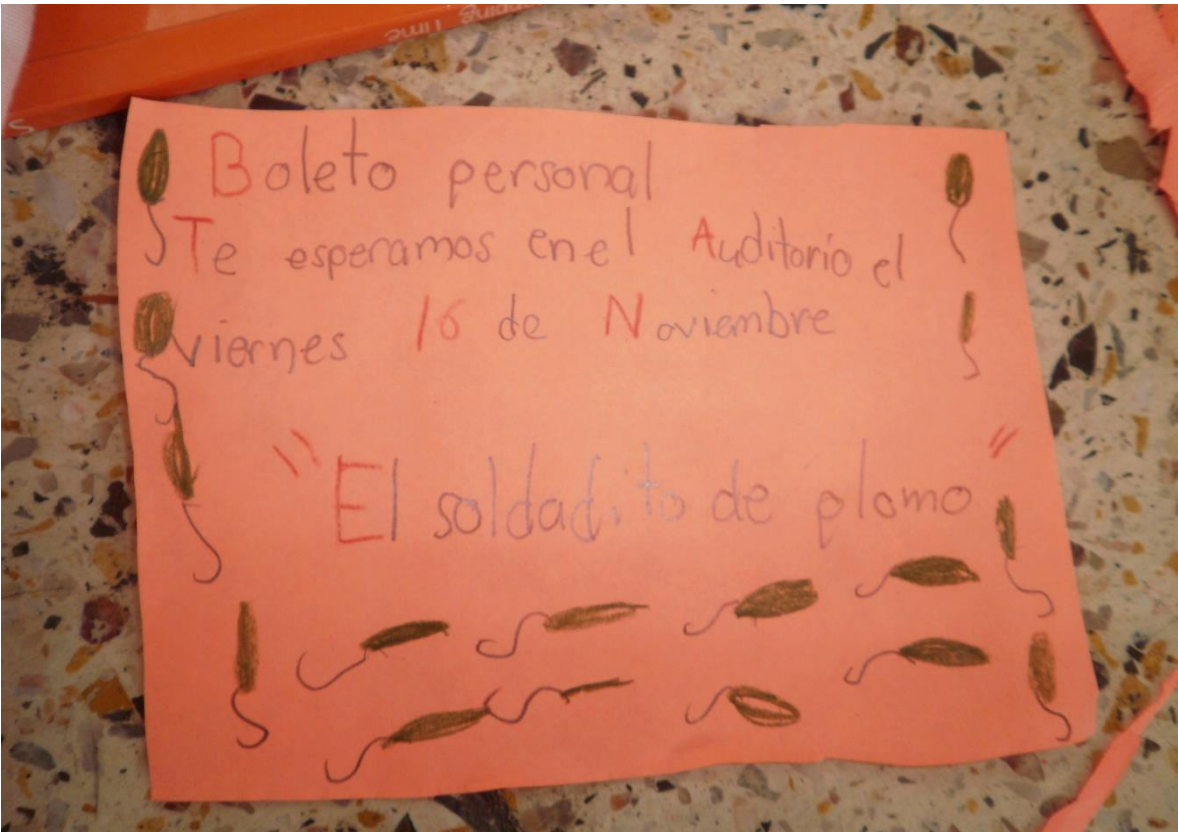 Boleto personal
Te esperamos en el Auditorio el
viernes 16 de Noviembre
"El soldadito de plomo"
Time